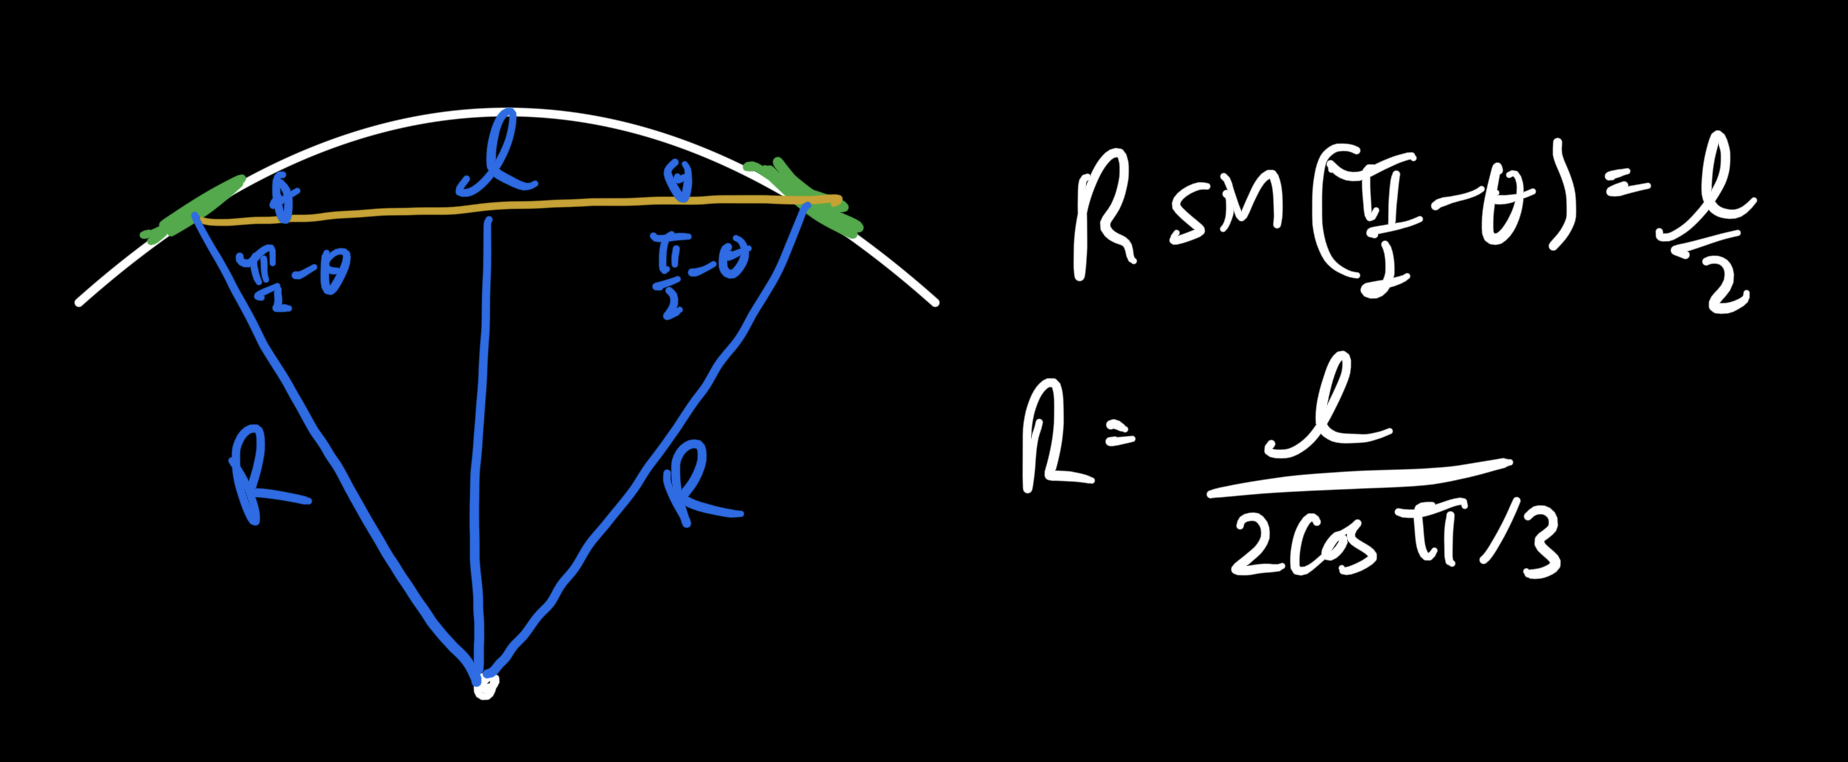 l
θ θ
π/2 - θ π/2 - θ
R R
R sin(π/2 - θ) = l/2
R = l/(2 cos π/3)